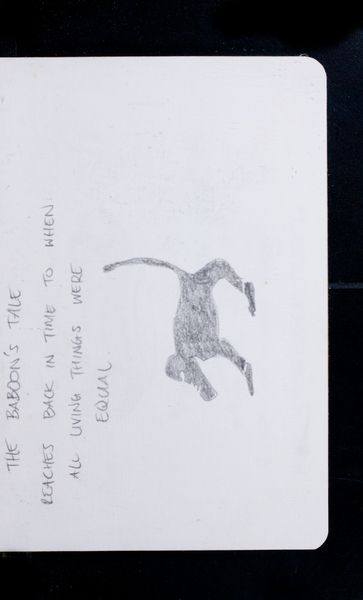 THE BABOON'S TALE
REACHES BACK IN TIME TO WHEN
ALL LIVING THINGS WERE
EQUAL